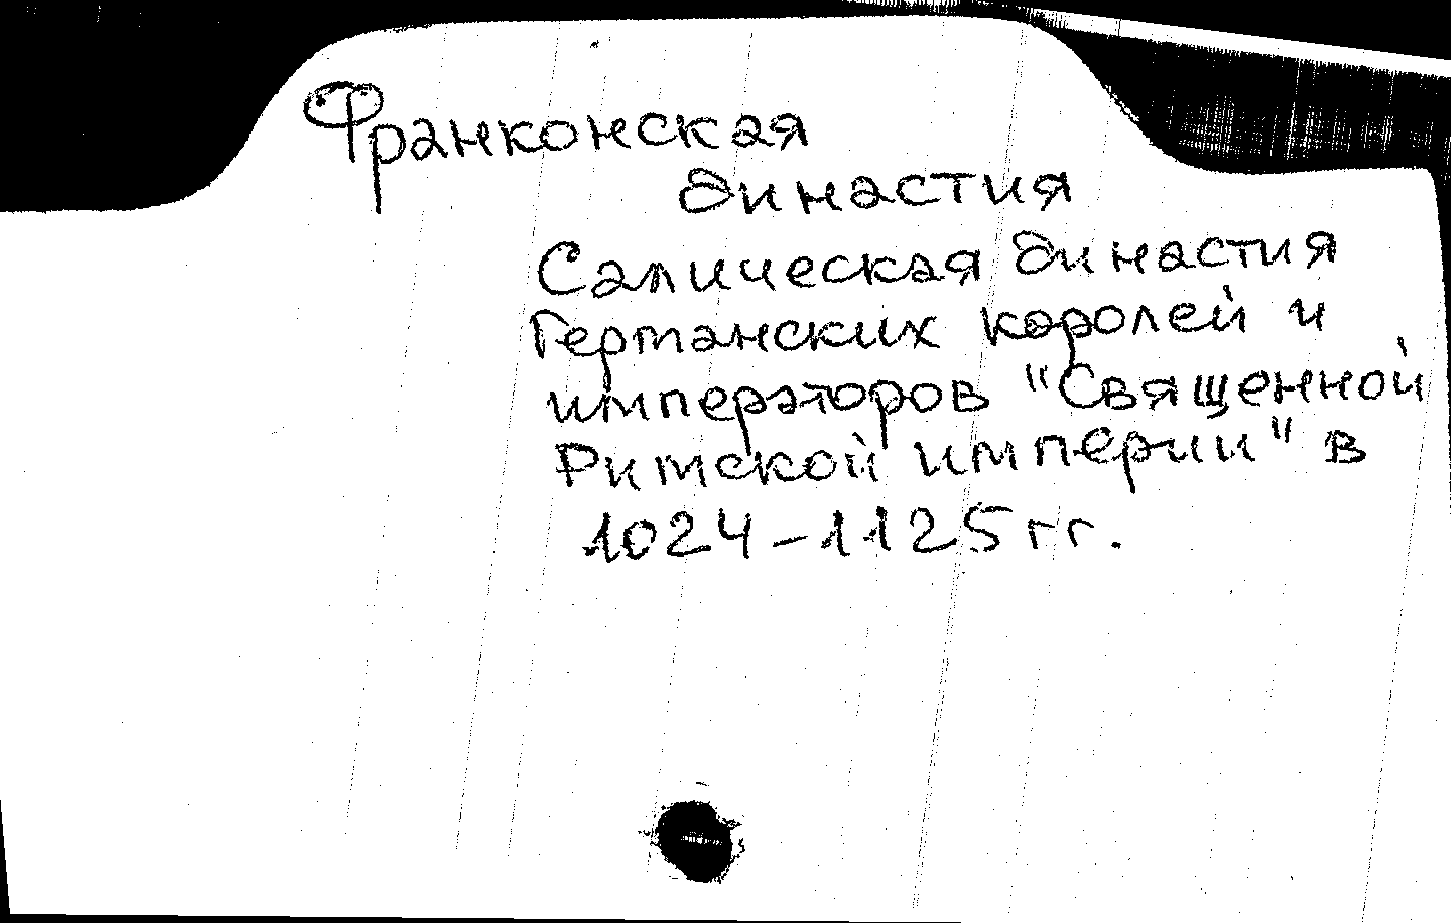 Франконская
династия
Салическая династия
Германских королей и
императоров "Священной
Римской империи" в
1024-1125 гг.